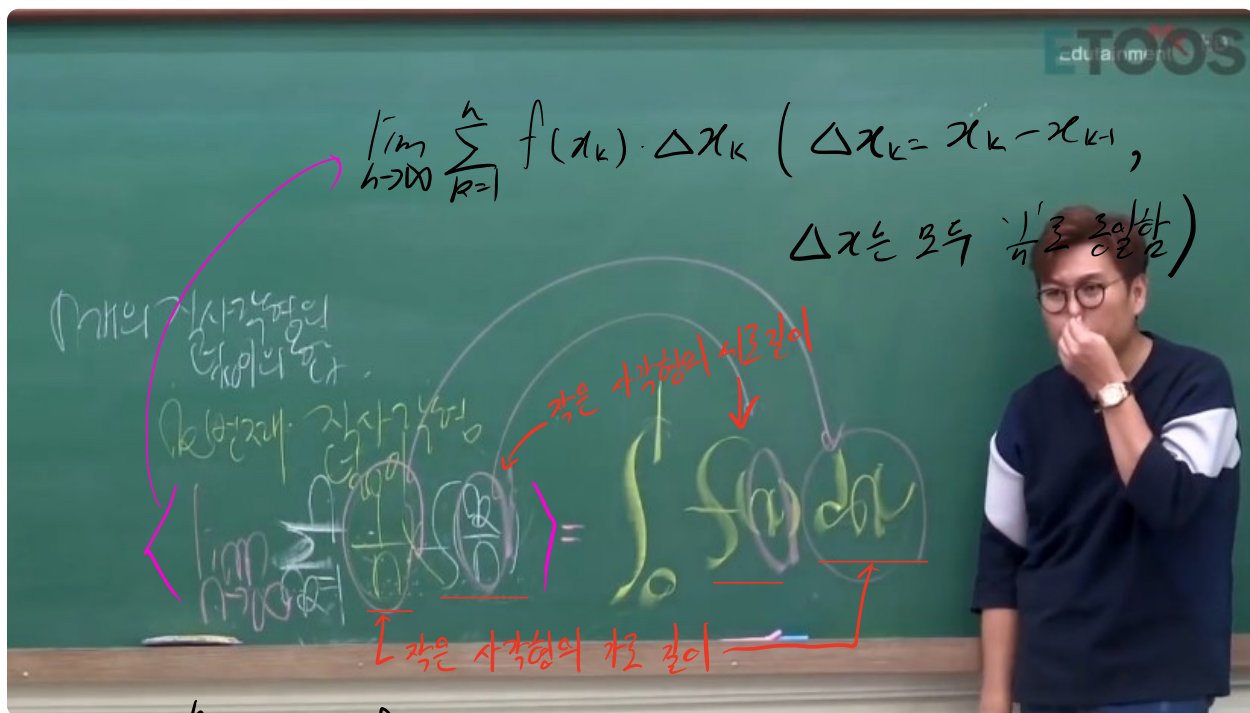 ETOOS
Edutainment
lim n→∞ Σ k=1 n f(xₖ)·Δxₖ ( Δxₖ = xₖ - xₖ₋₁ ,
Δx는 모두 '1/n'로 동일함 )
n개의 직사각형의
넓이의 합.
k번째 직사각형
넓이
작은 사각형의 세로길이
< lim n→∞ Σ k=1 n 1/n × f(k/n) > = ∫₀¹ f(x) dx
작은 사각형의 가로 길이